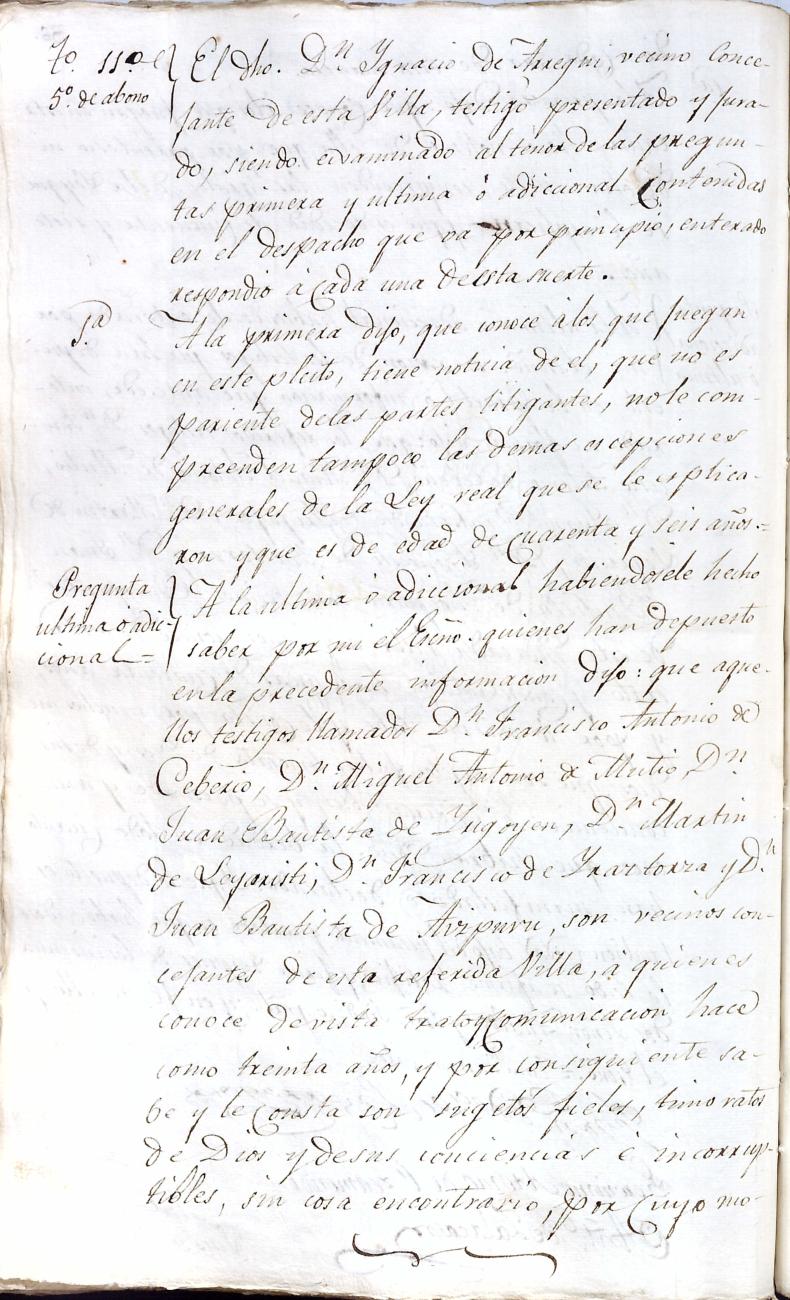 to. 11º
5º. de abono
El dho. Dn. Ygnacio de Arregui, vecino Conce-
jante de esta Villa, testigo presentado y jura-
do, siendo eixaminado al tenor de las pregun-
tas primera y ultima ó adiccional Contenidas
en el despacho que va por principio, enterado
respondio à cada una de esta suerte.
1.ª
A la primera dijo, que conoce álos que juegan
en este pleito, tiene noticia de el, que no es
pariente delas partes litigantes, nole com-
preenden tampoco las demas escepciones
generales de la Ley real que se le esplica-
ron y que es de edad de Cuarenta y seis años.=
Pregunta
ultima ó adic-
cional=
A la ultima ó adiccional habiendosele hecho
saber por mi el Esño. quienes han depuesto
enla precedente informacion dijo: que aque-
llos testigos llamados Dn. Francisco Antonio de
Ceberio, Dn. Miguel Antonio de Mutio, Dn.
Juan Bautista de Yrigoyen, Dn. Martin
de Leyaristi, Dn. Francisco de Yraztorza y Dn.
Juan Bautista de Aizpuru, son vecinos con-
cejantes de esta referida Villa, a quienes
conoce de vista trato y Comunicacion hace
como treinta años, y por consiguiente sa-
be y le Consta son sugetos fieles, timoratos
de Dios y desus conciencias é incorrup-
tibles, sin cosa encontrario, por Cuyo mo-